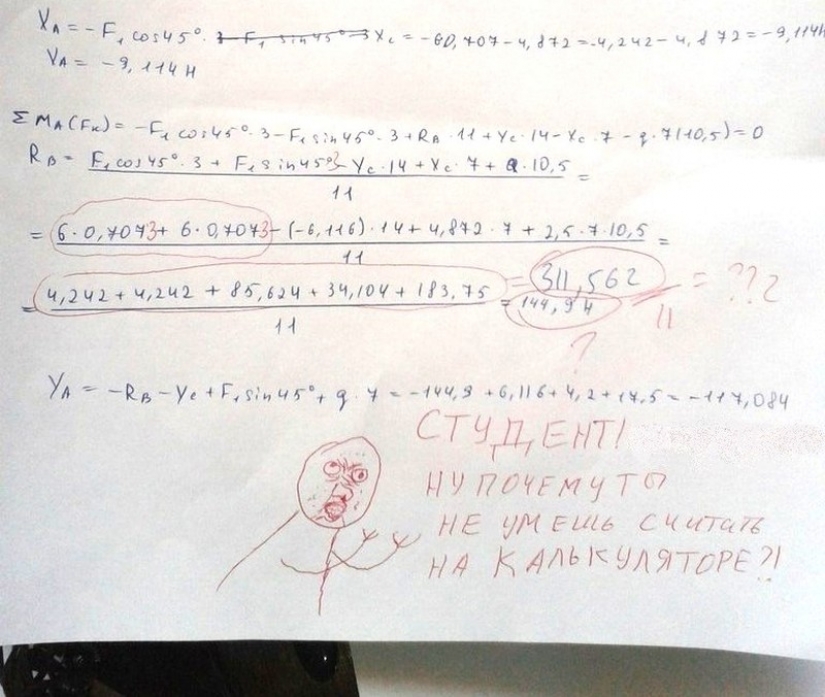 X_A = -F₁ cos45° · 3 - F₁ sin45° · 3 X_C = -60,707 - 4,872 = -4,242 - 4,872 = -9,114Н
Y_A = -9,114Н
ΣM_A(F_к) = -F₁ cos45° · 3 - F₁ sin45° · 3 + R_B · 11 + Y_C · 14 - X_C · 7 - q · 7(10,5) = 0
R_B = F₁ cos45° · 3 + F₁ sin45°3 - Y_C · 14 + X_C · 7 + q · 10,5 =
11
= 6 · 0,7073 + 6 · 0,7073 - (-6,116) · 14 + 4,872 · 7 + 2,5 · 7 · 10,5 =
11
= 4,242 + 4,242 + 85,624 + 34,104 + 183,75 = 144,94 = 311,562 = ???
11 11
?
Y_A = -R_B - Y_C + F₁ sin45° + q · 7 = -144,9 + 6,116 + 4,2 + 17,5 = -117,084
СТУДЕНТ!
НУ ПОЧЕМУ ТЫ
НЕ УМЕШЬ СЧИТАТЬ
НА КАЛЬКУЛЯТОРЕ?!